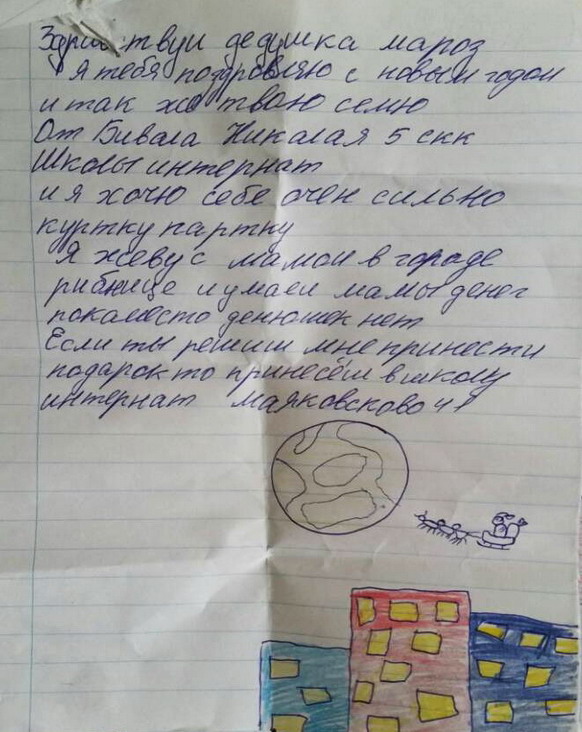 Здраствуи дедушка мароз
я тебя поздровляю с новым годом
и так же тваю семю
От Бивала Николая 5 скк
Школы интернат
и я хочю себе очен сильно
куртку партку
Я жеву с мамои в городе
рибнице и умаеи мамы денег
покаместо денюшек нет
Если ты решиш мне принести
подарок то принесёш в школу
интернат маяковсково 41